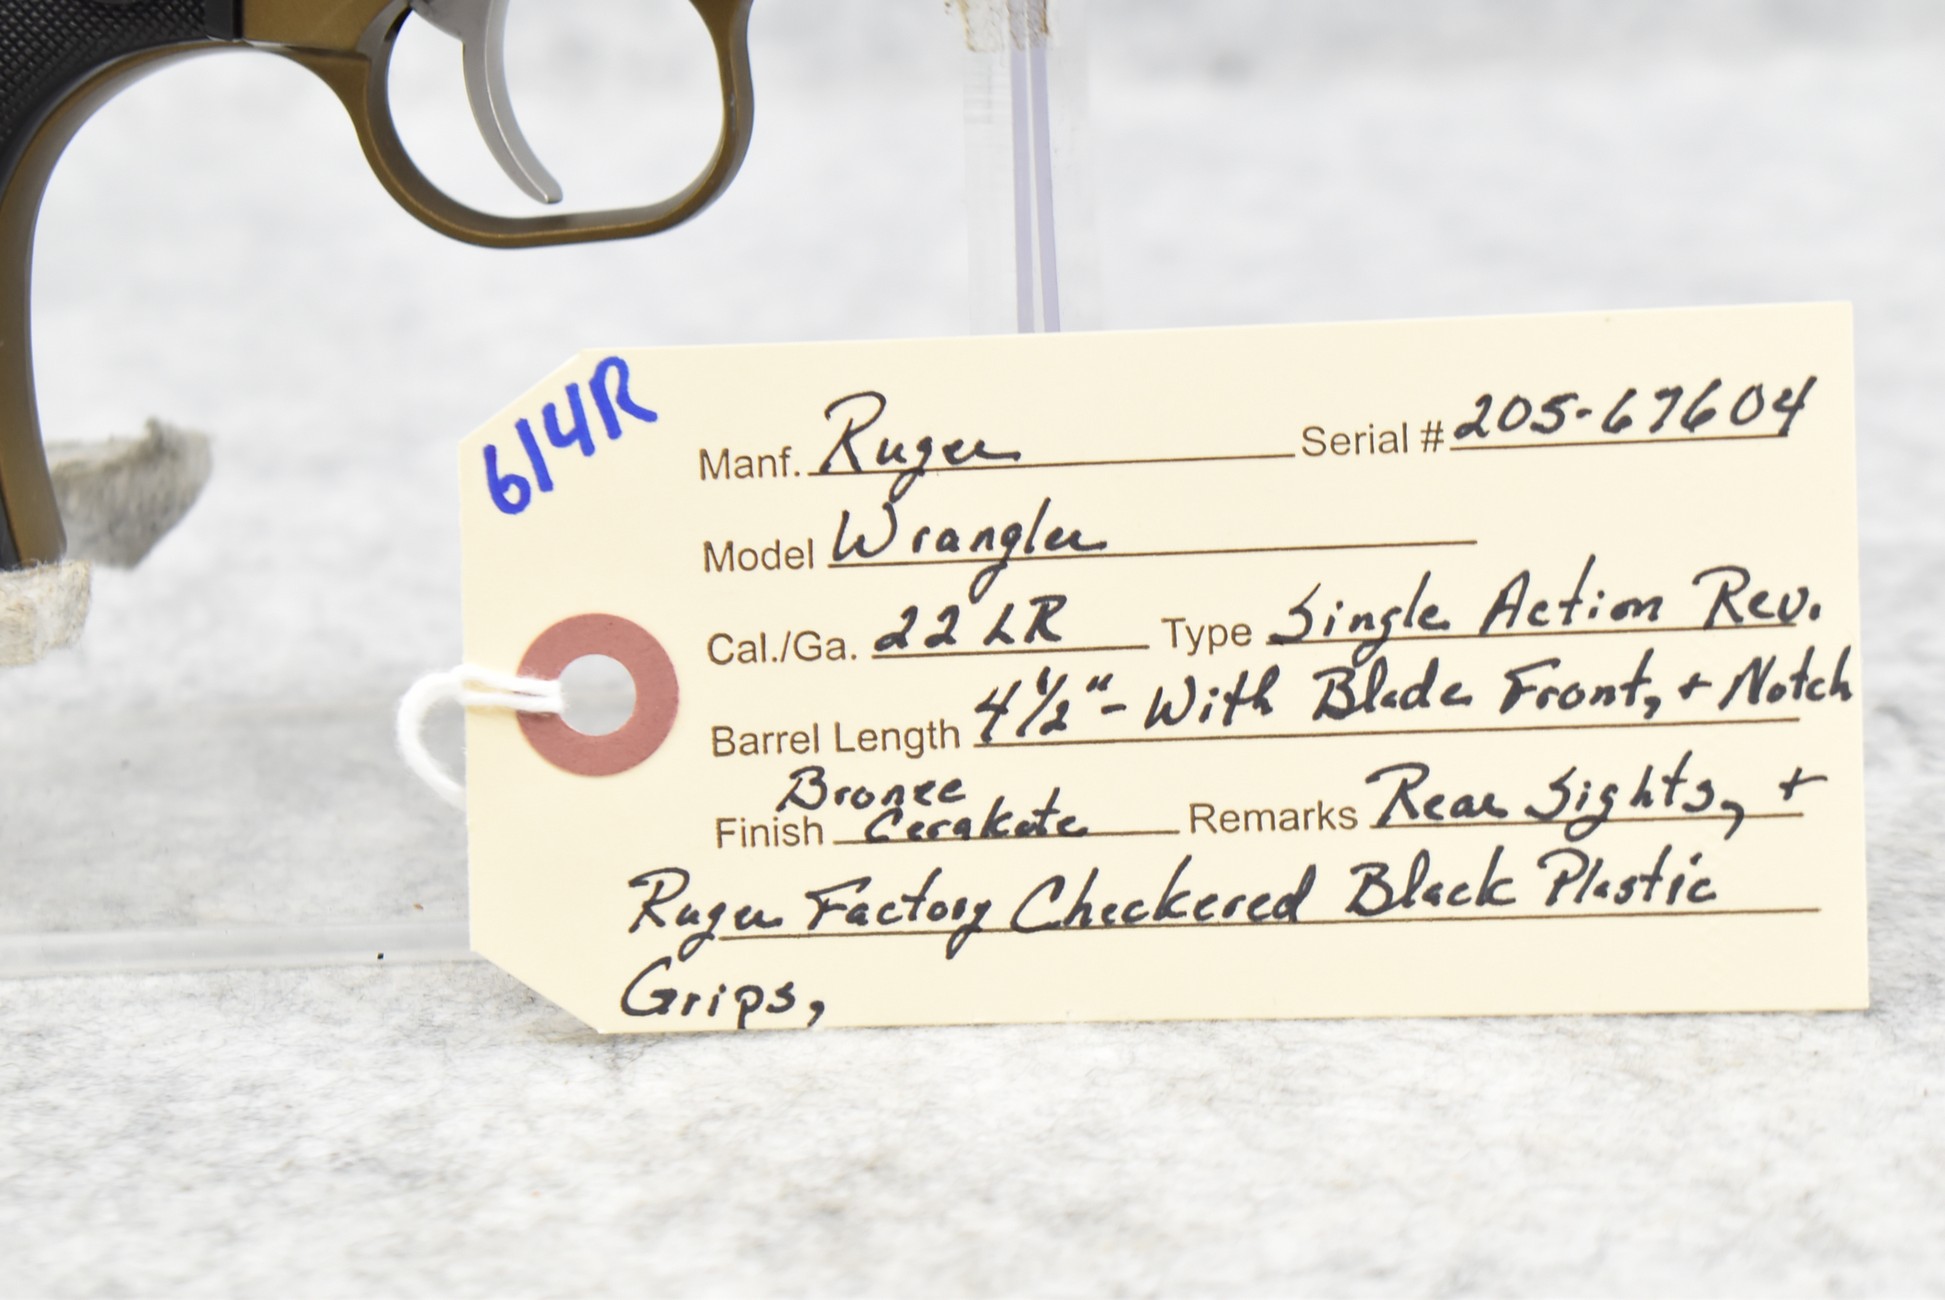 614R
Manf. Ruger Serial # 205-67604
Model Wrangler
Cal./Ga. 22 LR Type Single Action Rev.
Barrel Length 4 1/2" - With Blade Front, + Notch
Finish Bronze Cerakote Remarks Rear Sights, +
Ruger Factory Checkered Black Plastic
Grips,